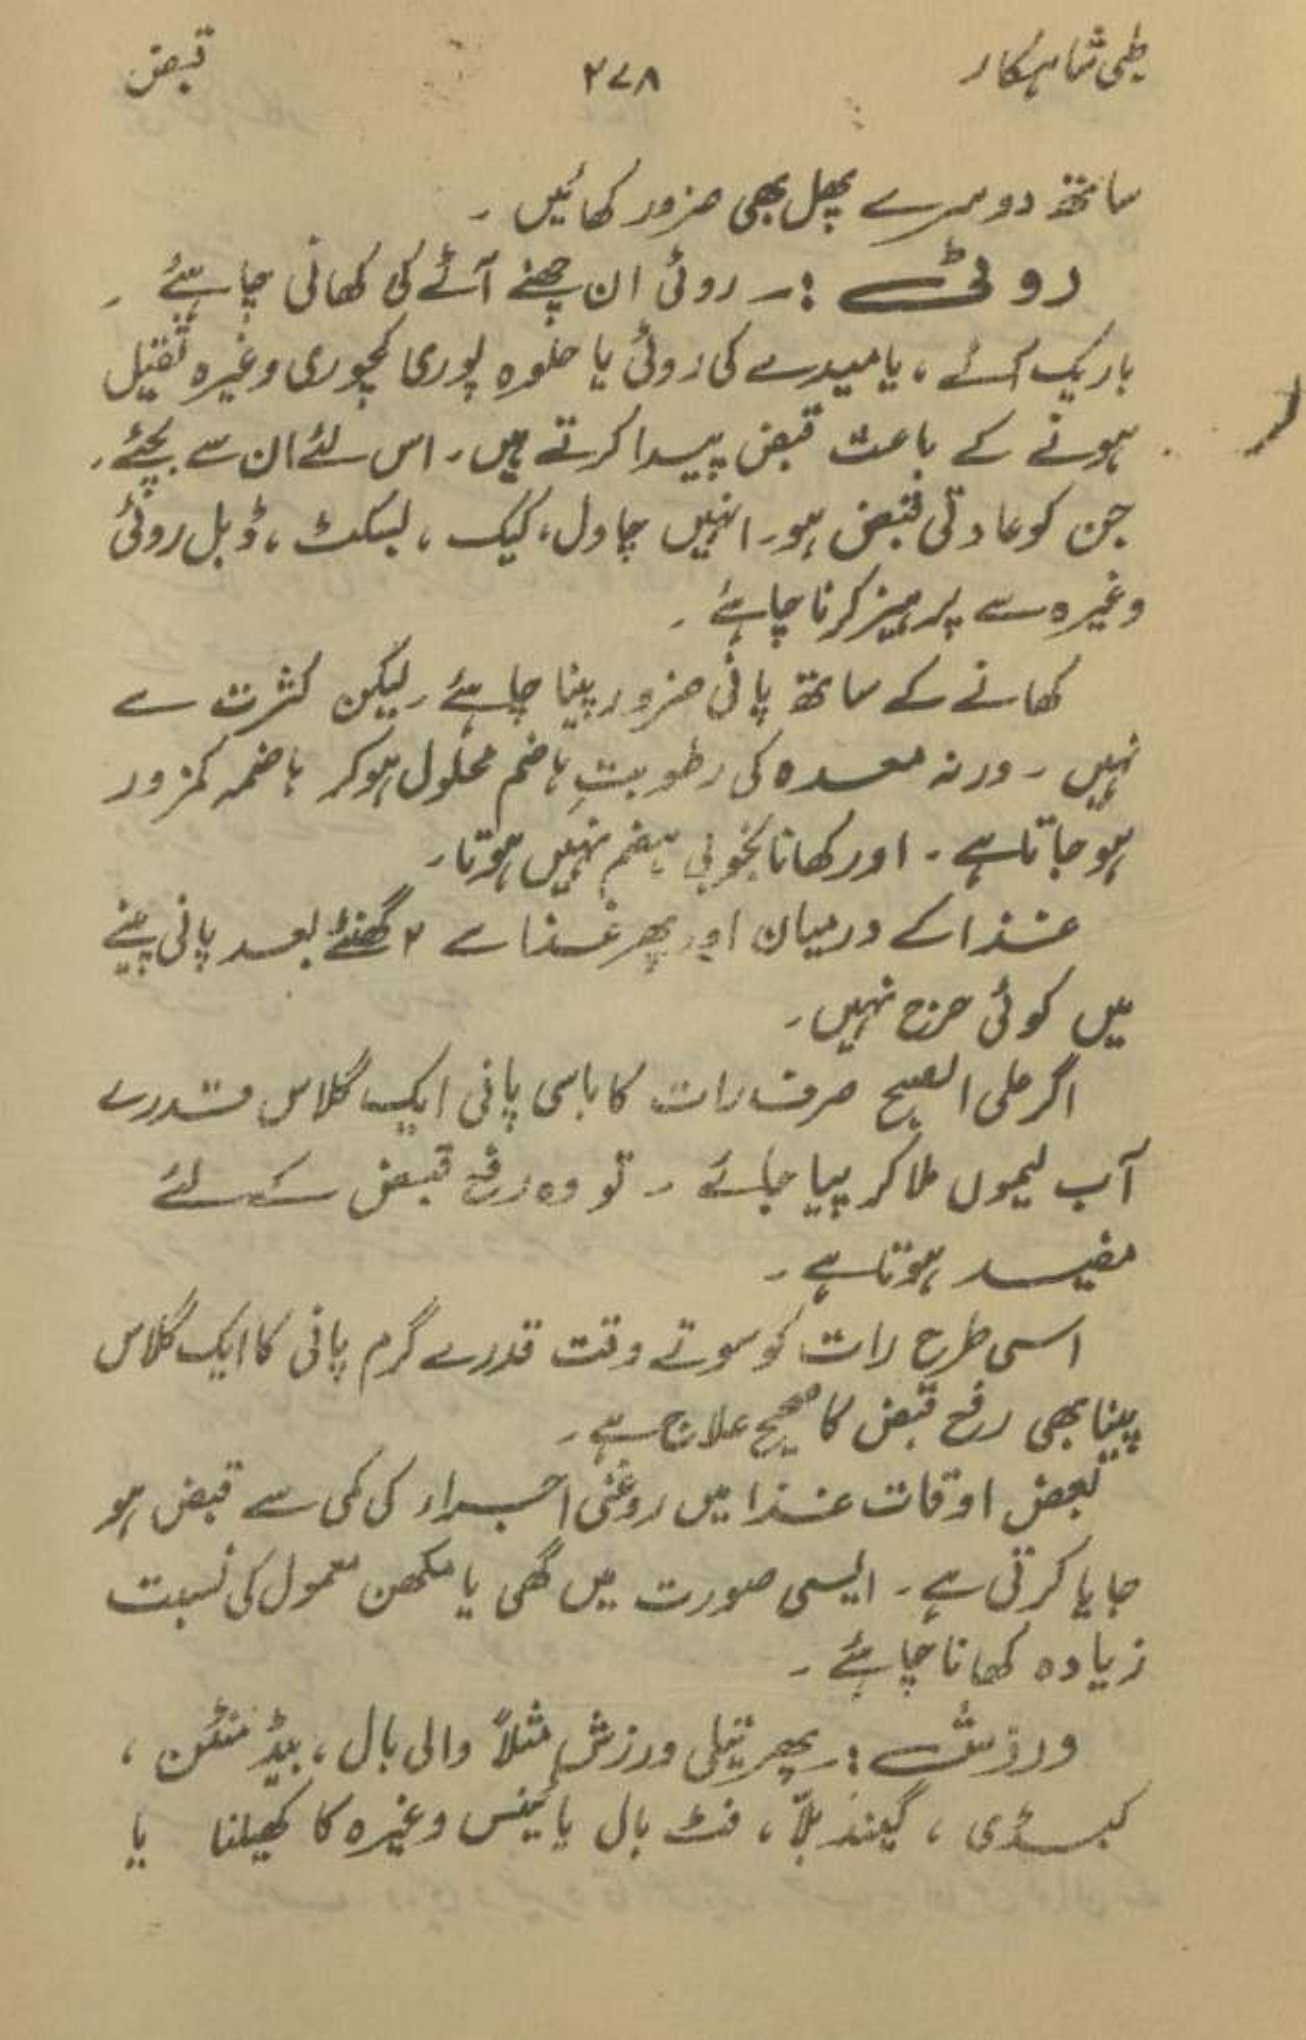 طبی شاہکار ۲۷۸ قبض
ساتھ دوسرے پھل بھی ضرور کھائیں ۔
روٹی :۔ روٹی ان چھنے آٹے کی کھانی چاہئے ۔
باریک آٹے ، یا میدے کی روٹی یا حلوہ پوری کچوری وغیرہ ثقیل
ہونے کے باعث قبض پیدا کرتے ہیں ۔ اس لئے ان سے بچئے ۔
جن کو عادتی قبض ہو ۔ انہیں چاول ، کیک ، بسکٹ ، ڈبل روٹی
وغیرہ سے پرہیز کرنا چاہئے ۔
کھانے کے ساتھ پانی ضرور پینا چاہئے ۔ لیکن کثرت سے
نہیں ۔ ورنہ معدہ کی رطوبتِ ہاضم محلول ہو کر ہاضمہ کمزور
ہو جاتا ہے ۔ اور کھانا بخوبی ہضم نہیں ہوتا ۔
غذا کے درمیان اور پھر غذا سے ۲ گھنٹے بعد پانی پینے
میں کوئی حرج نہیں ۔
اگر علی الصبح صرف رات کا باسی پانی ایک گلاس قدرے
آب لیموں ملا کر پیا جائے ۔ تو وہ رفع قبض کے لئے
مفید ہوتا ہے ۔
اسی طرح رات کو سوتے وقت قدرے گرم پانی کا ایک گلاس
پینا بھی رفع قبض کا صحیح علاج ہے ۔
بعض اوقات غذا میں روغنی اجزاء کی کمی سے قبض ہو
جایا کرتی ہے ۔ ایسی صورت میں گھی یا مکھن معمول کی نسبت
زیادہ کھانا چاہئے ۔
ورزش :۔ پھرتیلی ورزش مثلاً والی بال ، بیڈ منٹن ،
کبڈی ، گیند بلّا ، فٹ بال یا ٹینس وغیرہ کا کھیلنا یا